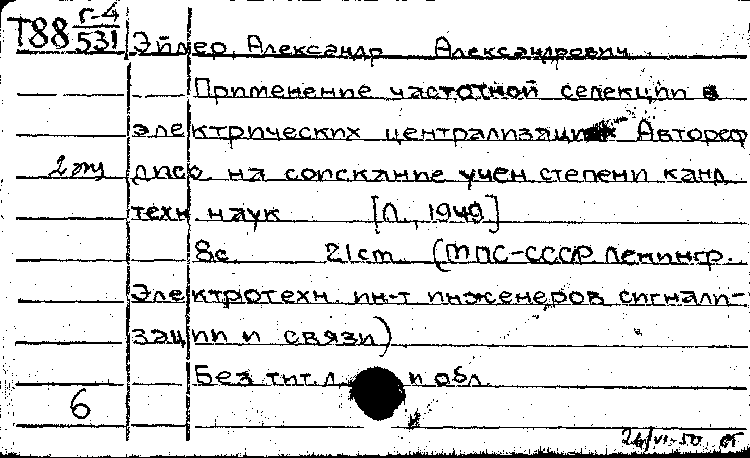 Т88 Г-4
531
Эйлер, Александр Александрович
Применение частотной селекции в
электрических централизациях Автореф
2 экз дисс. на соискание учен. степени канд.
техн. наук [Л., 1949]
8с. 21 см. (МПС-СССР Ленингр.
Электротехн. ин-т инженеров сигнали-
зации и связи)
Без тит. л. и обл.
6
24/VI-50